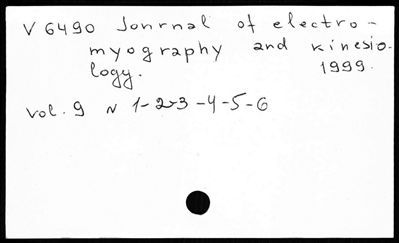 V 6490 Jonrnal of electro-
myography and kinesio-
logy. 1999.
vol. 9 N 1-2-3-4-5-6